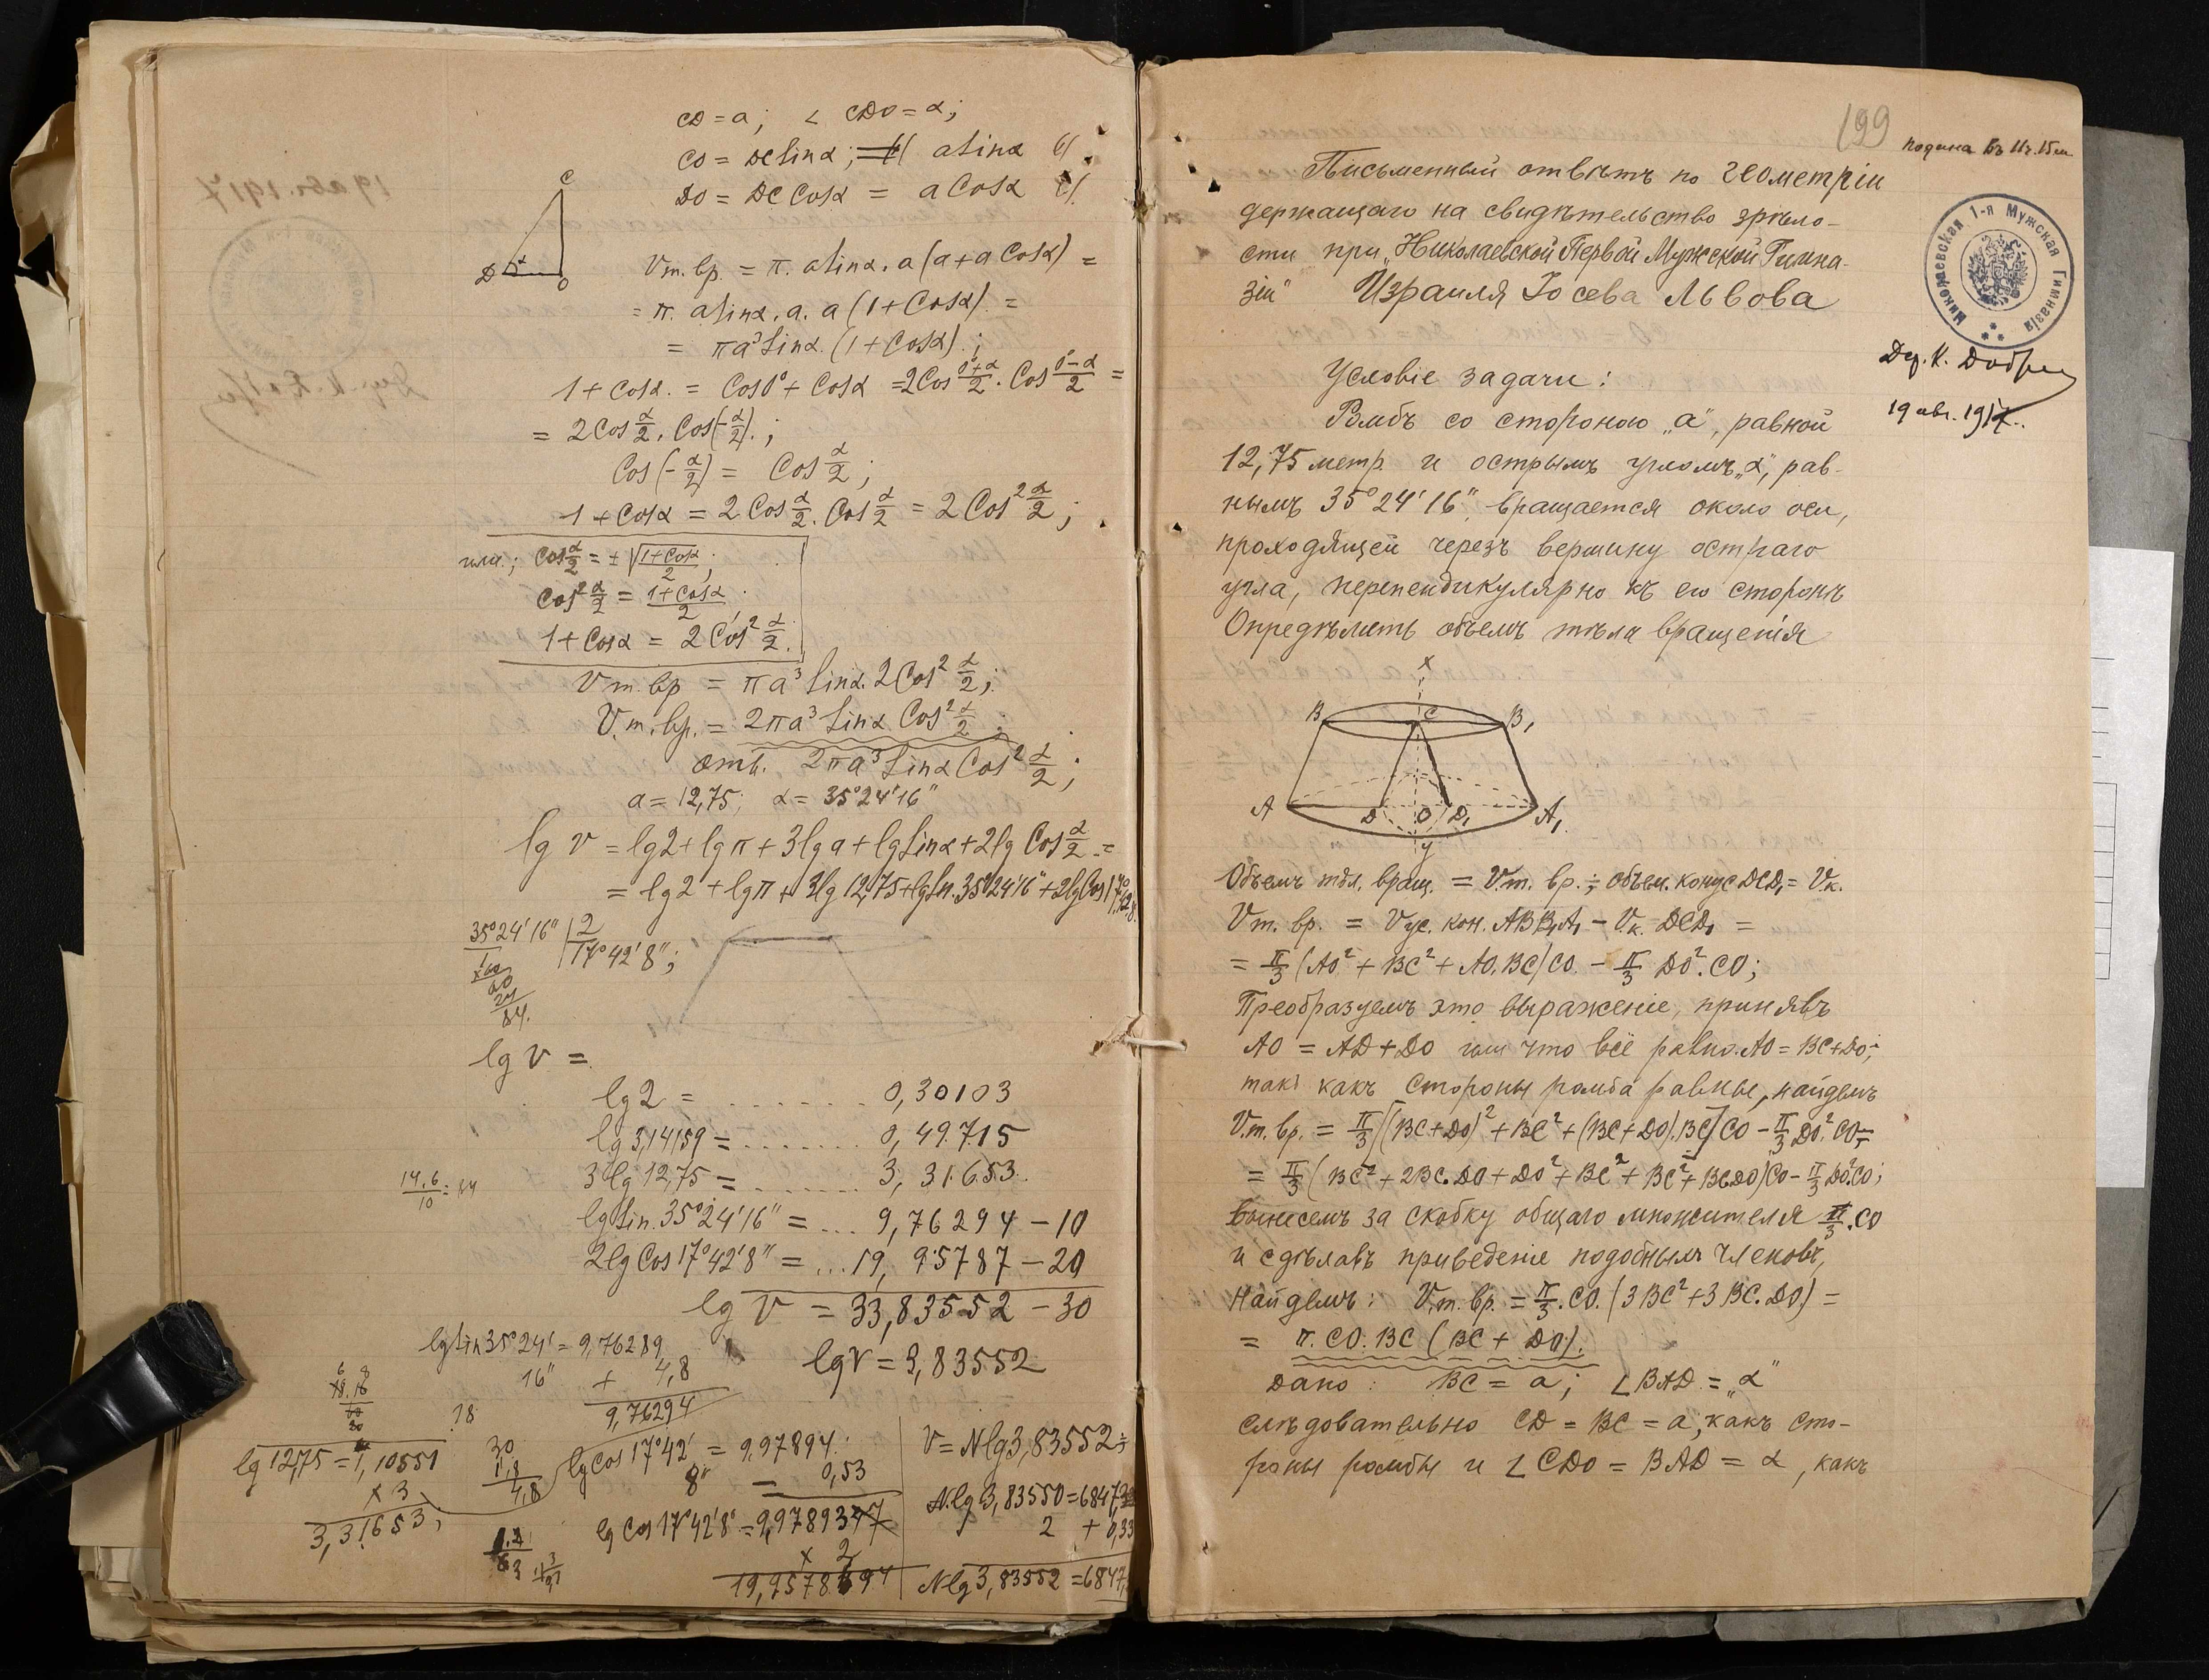 CD = a; ∠ CDO = α;
CO = DC Sinα; = a Sinα
DO = DC Cosα = a Cosα
C
D
α
O
Vт. вр. = π. a Sinα. a (a + a Cosα) =
= π. a Sinα. a. a (1 + Cosα) =
= πa³ Sinα. (1 + Cosα).;
1 + Cosα. = Cos 0° + Cosα = 2 Cos (0°+α)/2 . Cos (0°-α)/2 =
= 2 Cos α/2 . Cos(-α/2).;
Cos(-α/2) = Cos α/2;
1 + Cosα = 2 Cos α/2 . Cos α/2 = 2 Cos² α/2;
или; Cos α/2 = ± √(1+Cosα)/2;
Cos² α/2 = (1+Cosα)/2;
1 + Cosα = 2 Cos² α/2.
Vт. вр = πa³ Sinα. 2 Cos² α/2;
Vт. вр. = 2πa³ Sinα Cos² α/2;
отв. 2πa³ Sinα Cos² α/2;
a = 12,75; α = 35°24'16"
lg V = lg2 + lgπ + 3lg a + lg Sinα + 2lg Cos α/2 =
= lg2 + lgπ + 3lg 12,75 + lg Sin. 35°24'16" + 2lg Cos 17°42'8"
35°24'16" | 2
17°42'8";
1
×60
60
24
84.
lg V =
lg 2 = . . . . . . . 0,30103
lg 3,14159 = . . . . . . 0,49715
14,6/10 = 
3lg 12,75 = . . . . . . 3,31653.
lg Sin. 35°24'16" = ... 9,76294 - 10
2lg Cos 17°42'8" = ... 19,95787 - 20
lg V = 33,83552 - 30
lg V = 3,83552
lg Sin 35°24' = 9,76289
16" + 4,8
9,76294
lg 12,75 = 1,10551
× 3
3,31653;
18
30
1,8
4,8
lg Cos 17°42' = 9,97894.
8" - 0,53
lg Cos 17°42'8" = 9,97893
× 2
19,95787
V = Nlg 3,83552;
N.lg 3,83550 = 6847,
2 + 0,33
Nlg 3,83552 = 6847,
199
подана въ 11ч. 15м
Письменный отвѣтъ по геометріи
держащаго на свидѣтельство зрѣло-
сти при „Николаевской Первой Мужской Гимна-
зіи" Израиля Іосева Львова
Николаевская 1-я Мужская Гимназія
19 авг. 1917.
Условіе задачи:
Ромбъ со стороною „a", равной
12,75 метр. и острымъ угломъ „α", рав-
нымъ 35°24'16", вращается около оси,
проходящей черезъ вершину остраго
угла, перпендикулярно къ его сторонѣ
Опредѣлить объемъ тѣла вращенія
x
B C B₁
A D O D₁ A₁
y
Объемъ тѣл. вращ. = Vт. вр.; объем. конус DCD₁ = Vк.
Vт. вр. = Vус. кон. ABB₁A₁ - Vк. DCD₁ =
= π/3 (AO² + BC² + AO. BC) CO. - π/3 DO². CO;
Преобразуемъ это выраженіе, принявъ
AO = AD + DO или что всё равно. AO = BC + DO;
такъ какъ стороны ромба равны, найдемъ
Vт. вр. = π/3 [(BC+DO)² + BC² + (BC+DO).BC] CO - π/3 DO². CO =
= π/3 (BC² + 2BC.DO + DO² + BC² + BC² + BC.DO) CO - π/3 DO².CO;
Вынесемъ за скобку общаго множителя π/3.CO
и сдѣлавъ приведеніе подобныхъ членовъ,
найдемъ: Vт. вр. = π/3. CO. (3BC² + 3BC. DO) =
= π. CO. BC (BC + DO).
дано: BC = a; ∠ BAD = „α"
слѣдовательно CD = BC = a, какъ сто-
роны ромбы и ∠ CDO = BAD = α, какъ